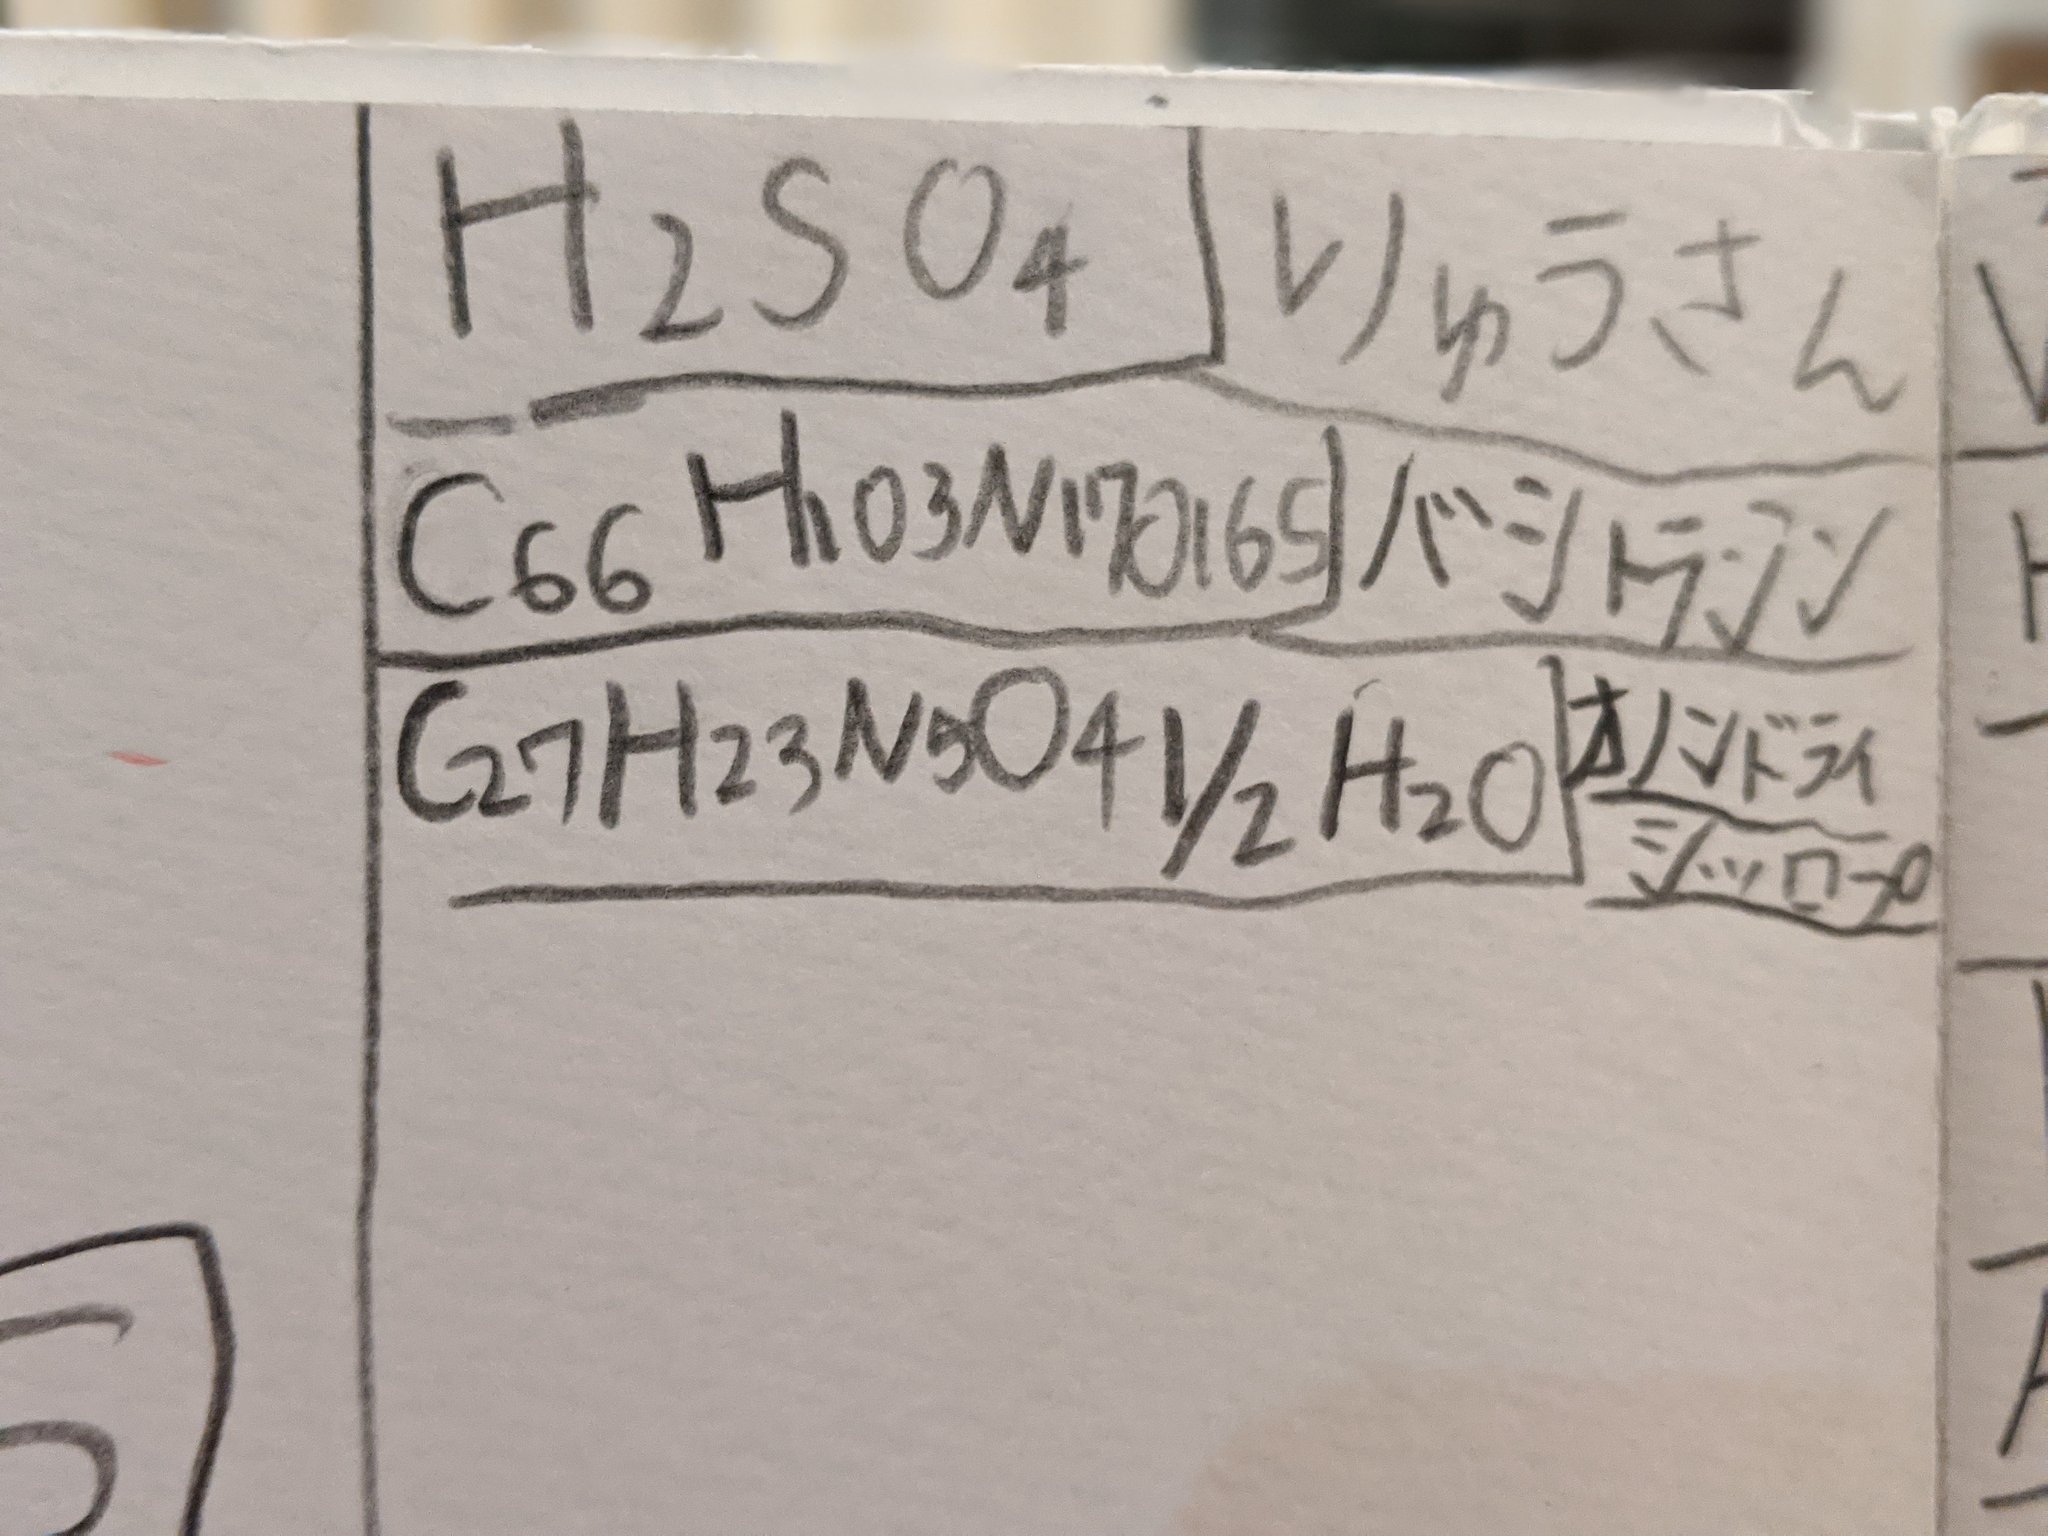 H2SO4 りゅうさん
C66H103N17O16S バシトラシン
C27H23N5O4 1/2 H2O オノンドライ
シッロップ